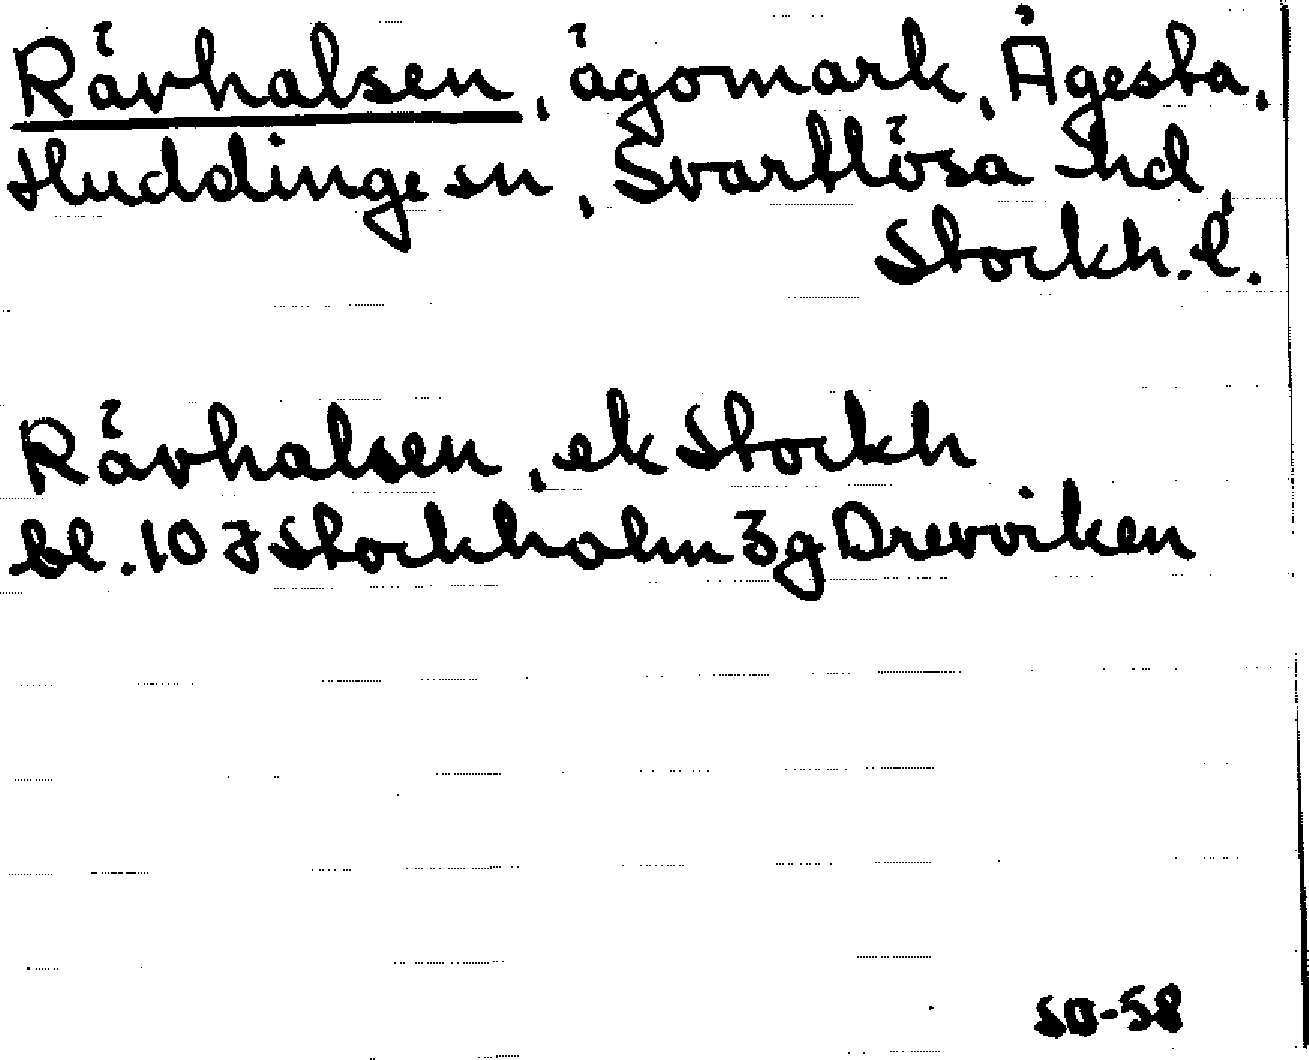 Rävhalsen, ägomark, Ågesta,
Huddinge sn, Svartlösa hd,
Stockh. l.
Rävhalsen, ek Stockh
bl. 10 J Stockholm 3g Drevviken
SO-58